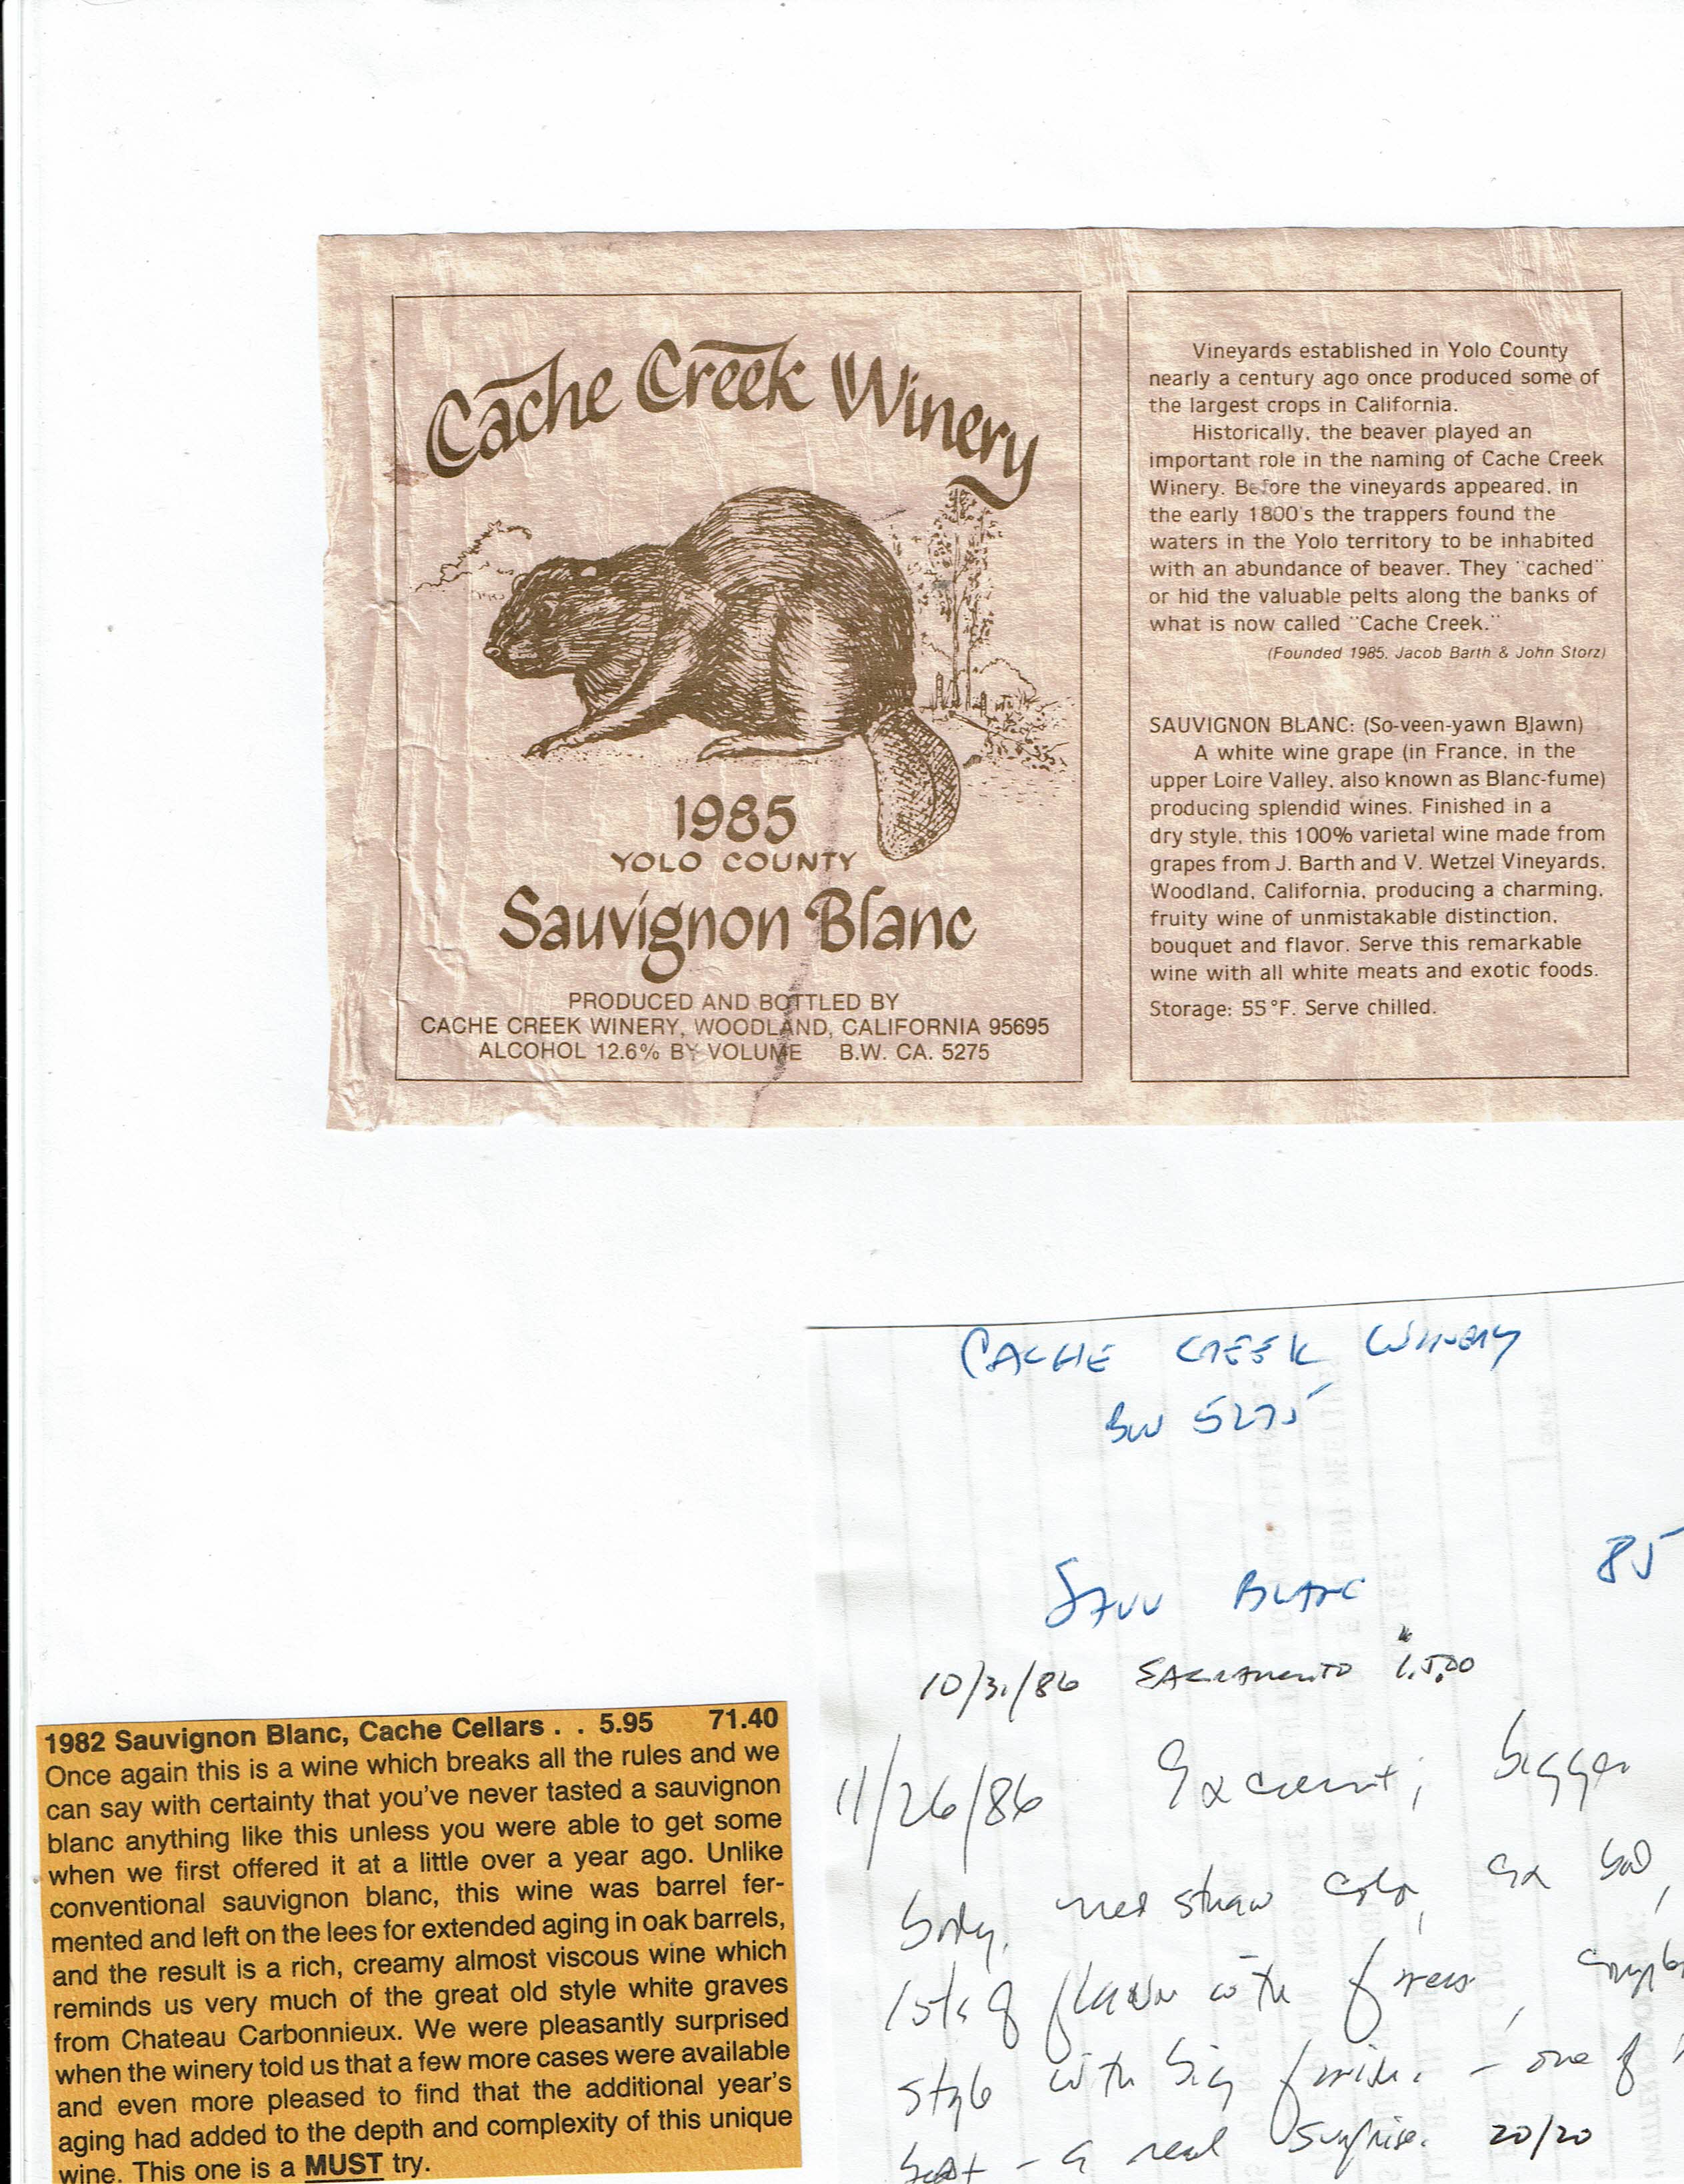 Cache Creek Winery
1985
YOLO COUNTY
Sauvignon Blanc
PRODUCED AND BOTTLED BY
CACHE CREEK WINERY, WOODLAND, CALIFORNIA 95695
ALCOHOL 12.6% BY VOLUME B.W. CA. 5275
Vineyards established in Yolo County
nearly a century ago once produced some of
the largest crops in California.
Historically, the beaver played an
important role in the naming of Cache Creek
Winery. Before the vineyards appeared, in
the early 1800's the trappers found the
waters in the Yolo territory to be inhabited
with an abundance of beaver. They "cached"
or hid the valuable pelts along the banks of
what is now called "Cache Creek."
(Founded 1985, Jacob Barth & John Storz)
SAUVIGNON BLANC: (So-veen-yawn Blawn)
A white wine grape (in France, in the
upper Loire Valley, also known as Blanc-fume)
producing splendid wines. Finished in a
dry style, this 100% varietal wine made from
grapes from J. Barth and V. Wetzel Vineyards,
Woodland, California, producing a charming,
fruity wine of unmistakable distinction,
bouquet and flavor. Serve this remarkable
wine with all white meats and exotic foods.
Storage: 55°F. Serve chilled.
CACHE CREEK WINERY
BW 5275
SAUV BLANC 85
10/31/86 SACRAMENTO
11/26/86 Excellent, bigger
body, straw color,
lots of flavor with finesse, complex
style with big finish. - one of
best - a real surprise. 20/20
1982 Sauvignon Blanc, Cache Cellars . . 5.95 71.40
Once again this is a wine which breaks all the rules and we
can say with certainty that you've never tasted a sauvignon
blanc anything like this unless you were able to get some
when we first offered it at a little over a year ago. Unlike
conventional sauvignon blanc, this wine was barrel fer-
mented and left on the lees for extended aging in oak barrels,
and the result is a rich, creamy almost viscous wine which
reminds us very much of the great old style white graves
from Chateau Carbonnieux. We were pleasantly surprised
when the winery told us that a few more cases were available
and even more pleased to find that the additional year's
aging had added to the depth and complexity of this unique
wine. This one is a MUST try.